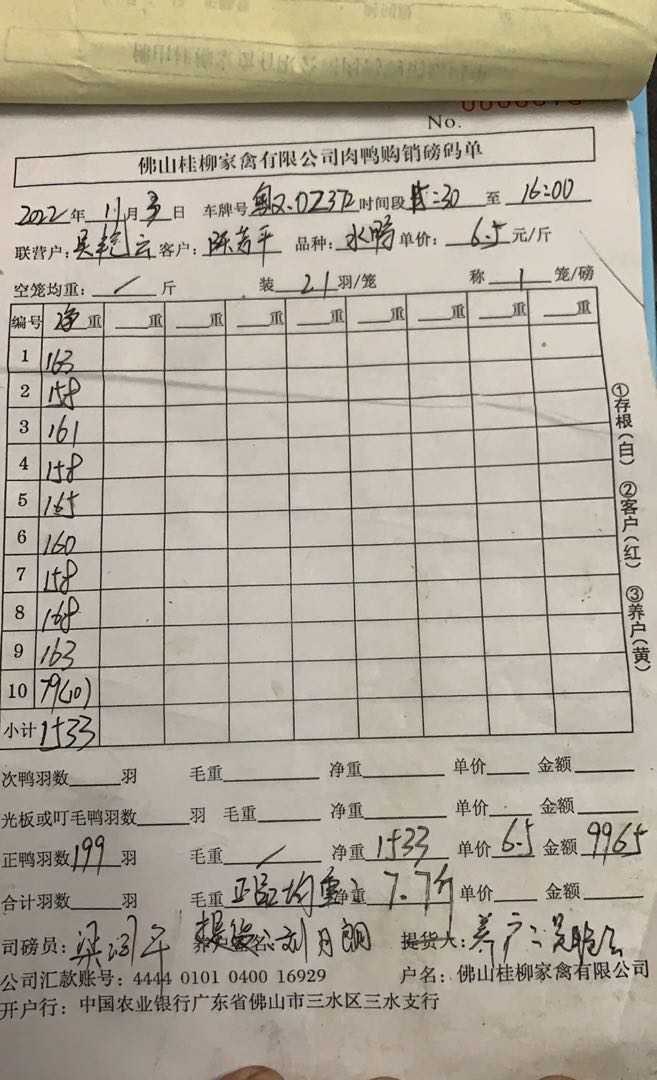 No.
佛山桂柳家禽有限公司肉鸭购销磅码单
2022年 11月 3日 车牌号 时间段 15:30 至 16:00
联营户: 客户: 平 品种: 水鸭 单价: 6.5 元/斤
空笼均重: / 斤 装 21 羽/笼 称 1 笼/磅
编号 净重 重 重 重 重 重 重 重 重
1 163
2 158
3 161
4 158
5 165
6 160
7 158
8 168
9 163
10 79(10)
小计 1533
①存根(白) ②客户(红) ③养户(黄)
次鸭羽数 羽 毛重 净重 单价 金额
光板或叮毛鸭羽数 羽 毛重 净重 单价 金额
正鸭羽数 199 羽 毛重 / 净重 1533 单价 6.5 金额 9965
合计羽数 羽 毛重 均重: 净重 7.7斤 单价 金额
司磅员: 梁 刘月 提货人: 养户:
公司汇款账号: 4444 0101 0400 16929 户名: 佛山桂柳家禽有限公司
开户行: 中国农业银行广东省佛山市三水区三水支行